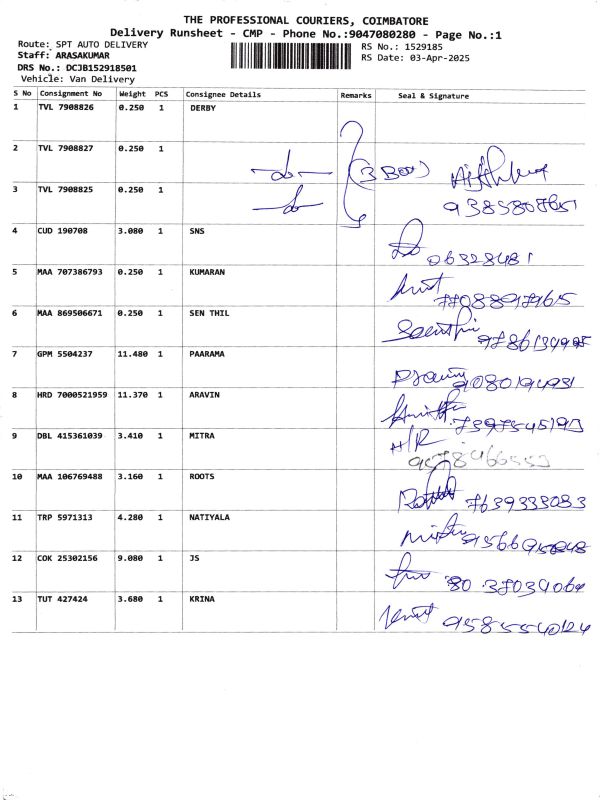 THE PROFESSIONAL COURIERS, COIMBATORE
Delivery Runsheet - CMP - Phone No.:9047080280 - Page No.:1
Route: SPT AUTO DELIVERY
Staff: ARASAKUMAR
DRS No.: DCJB152918501
Vehicle: Van Delivery
RS No.: 1529185
RS Date: 03-Apr-2025
S No Consignment No Weight PCS Consignee Details Remarks Seal & Signature
1 TVL 7908826 0.250 1 DERBY
2 TVL 7908827 0.250 1
(3 Box)
3 TVL 7908825 0.250 1
4 CUD 190708 3.080 1 SNS
5 MAA 707386793 0.250 1 KUMARAN
6 MAA 869506671 0.250 1 SEN THIL
7 GPM 5504237 11.480 1 PAARAMA
8 HRD 7000521959 11.370 1 ARAVIN
7397545193
9 DBL 415361039 3.410 1 MITRA
10 MAA 106769488 3.160 1 ROOTS
7639333083
11 TRP 5971313 4.280 1 NATIYALA
12 COK 25302156 9.080 1 JS
13 TUT 427424 3.680 1 KRINA
9585540124